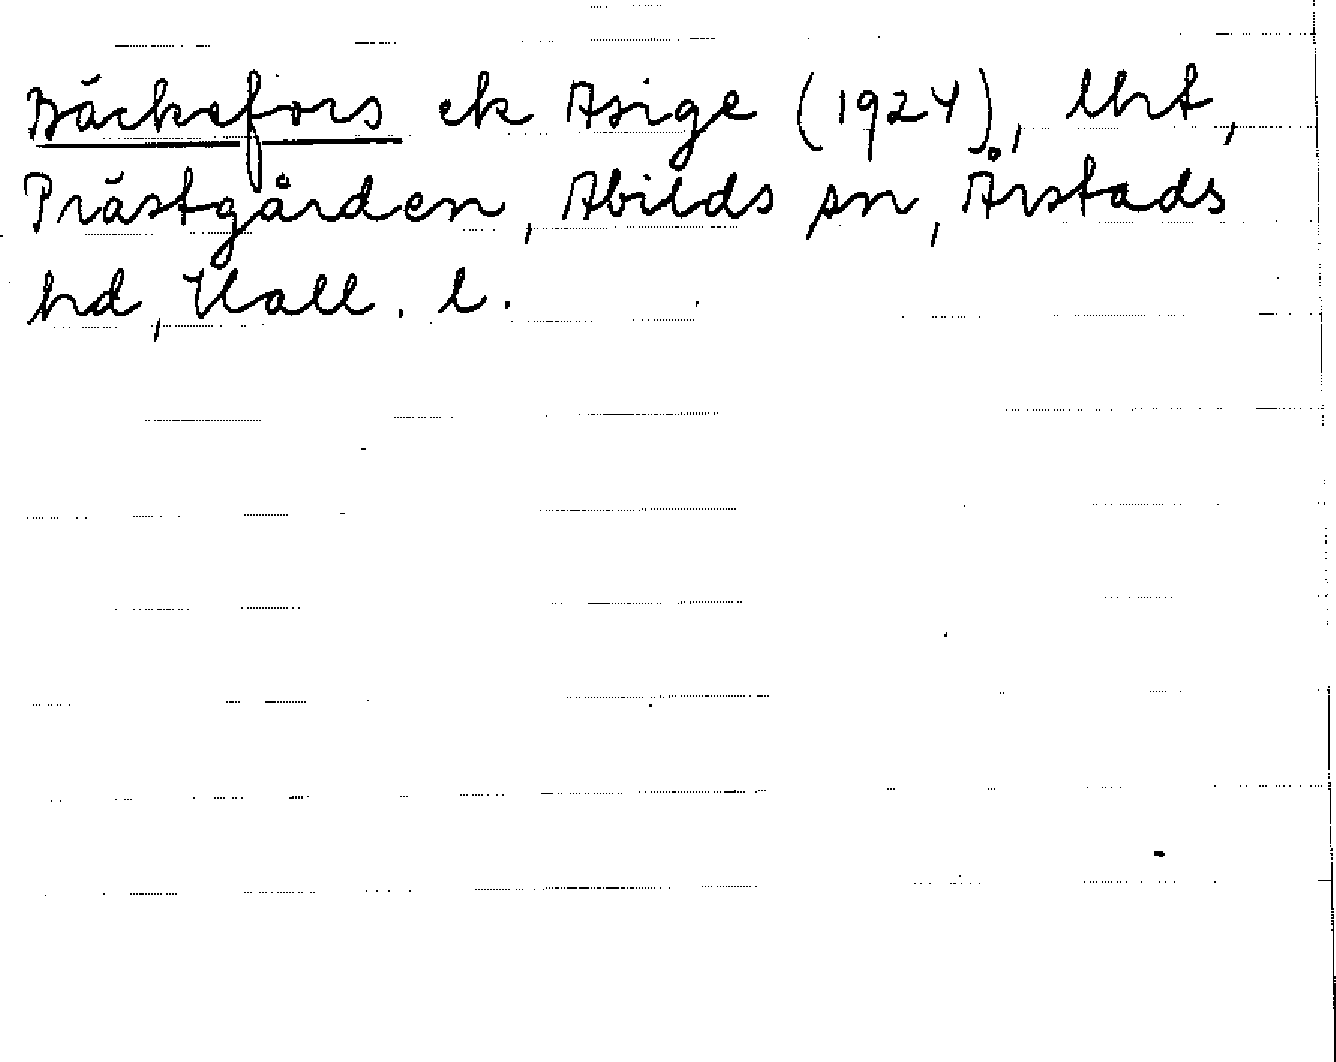 Bäckefors ek Asige (1924), lht,
Prästgården, Abilds sn, Årstads
hd, Hall. l.